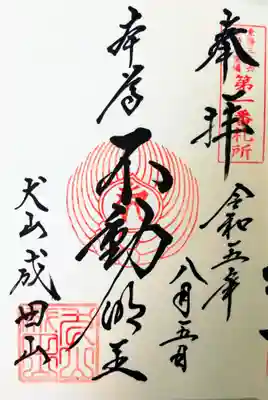 奉拝
第一番札所
令和五年
八月五日
本尊
不動明王
犬山成田山